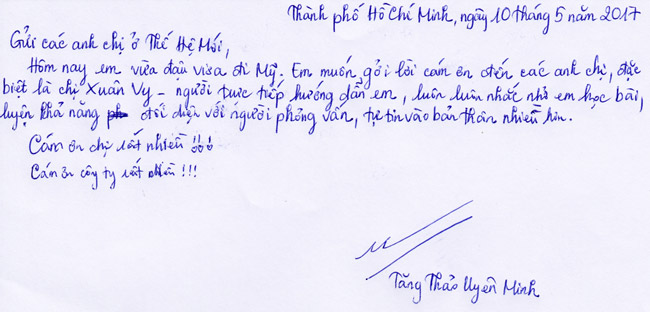 Thành phố Hồ Chí Minh, ngày 10 tháng 5 năm 2017
Gửi các anh chị ở Thế Hệ Mới,
Hôm nay em vừa đậu visa đi Mỹ. Em muốn gởi lời cám ơn đến các anh chị, đặc
biệt là chị Xuân Vy - người trực tiếp hướng dẫn em, luôn luôn nhắc nhở em học bài,
luyện khả năng đối diện với người phỏng vấn, tự tin vào bản thân nhiều hơn.
Cám ơn chị rất nhiều !!!
Cám ơn công ty rất nhiều !!!
Tăng Thảo Uyên Minh